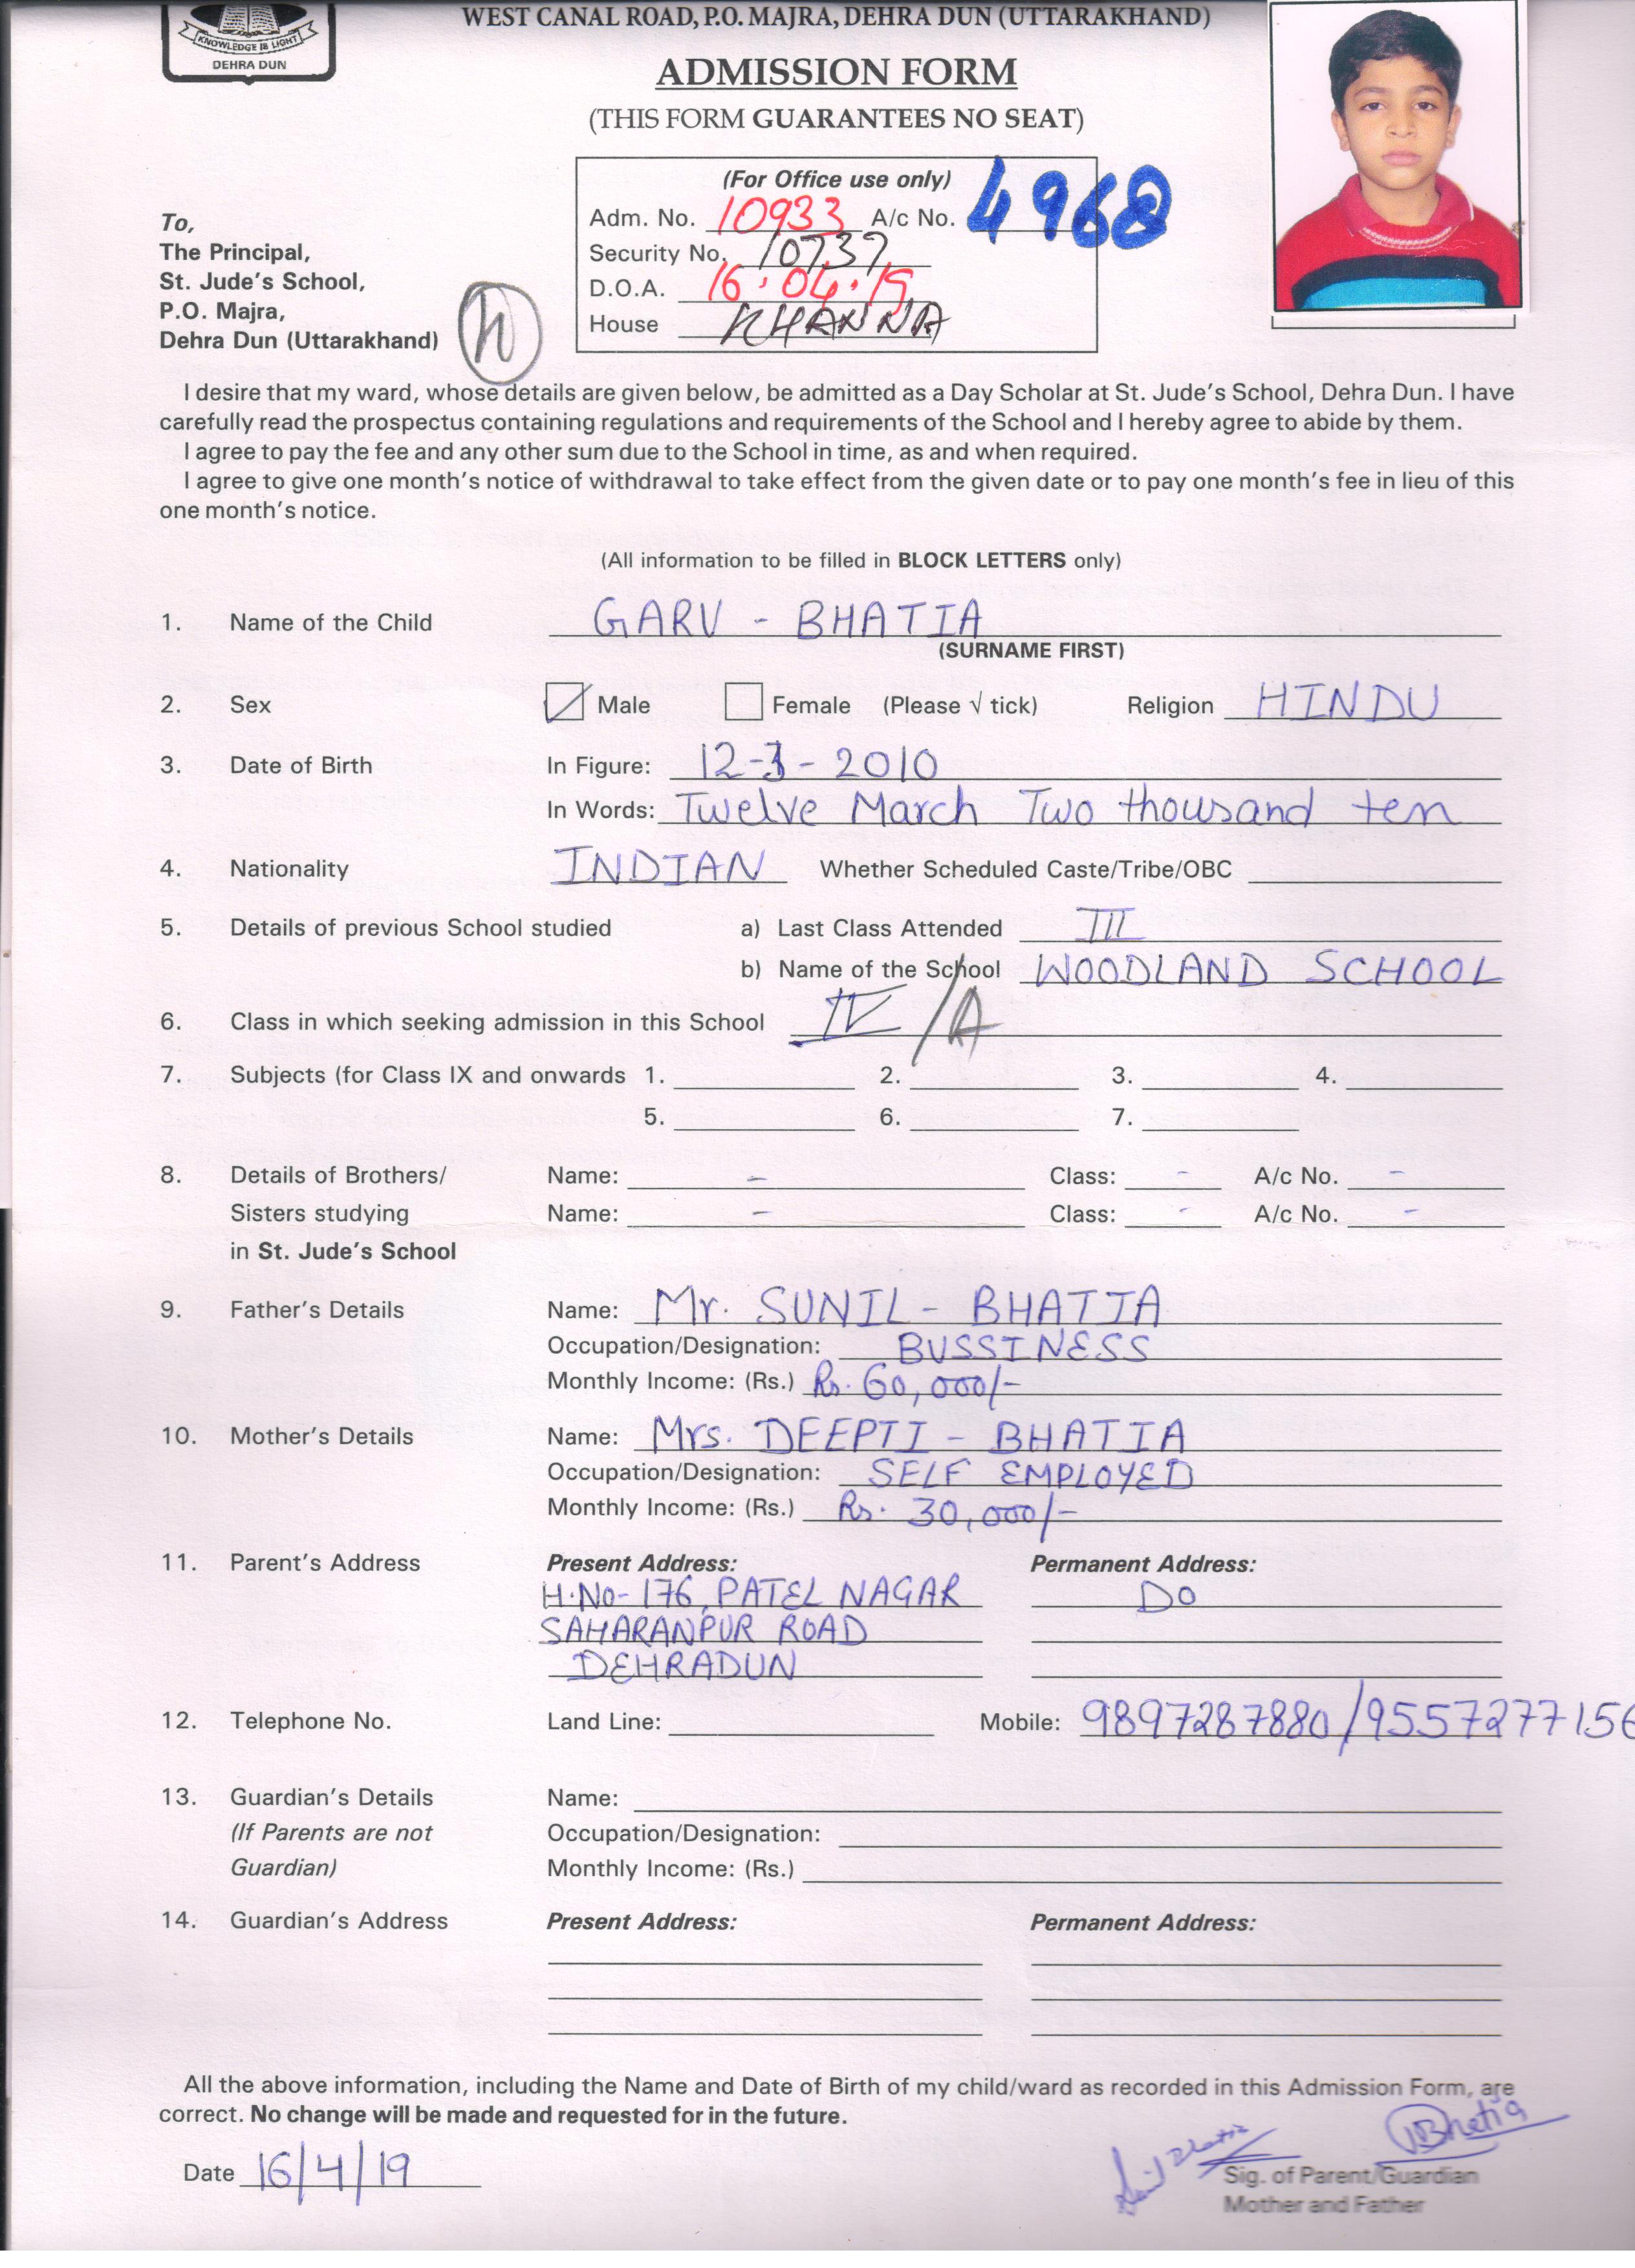 KNOWLEDGE IS LIGHT
DEHRA DUN
WEST CANAL ROAD, P.O. MAJRA, DEHRA DUN (UTTARAKHAND)
ADMISSION FORM
(THIS FORM GUARANTEES NO SEAT)
(For Office use only)
Adm. No. 10933 A/c No. 4968
Security No. 10737
D.O.A. 16.04.19
House KHANNA
To,
The Principal,
St. Jude's School,
P.O. Majra,
Dehra Dun (Uttarakhand)
I desire that my ward, whose details are given below, be admitted as a Day Scholar at St. Jude's School, Dehra Dun. I have
carefully read the prospectus containing regulations and requirements of the School and I hereby agree to abide by them.
I agree to pay the fee and any other sum due to the School in time, as and when required.
I agree to give one month's notice of withdrawal to take effect from the given date or to pay one month's fee in lieu of this
one month's notice.
(All information to be filled in BLOCK LETTERS only)
1. Name of the Child GARV - BHATIA
(SURNAME FIRST)
2. Sex Male Female (Please √ tick) Religion HINDU
3. Date of Birth In Figure: 12-3-2010
In Words: Twelve March Two thousand ten
4. Nationality INDIAN Whether Scheduled Caste/Tribe/OBC
5. Details of previous School studied a) Last Class Attended III
b) Name of the School WOODLAND SCHOOL
6. Class in which seeking admission in this School IV /A
7. Subjects (for Class IX and onwards 1. 2. 3. 4.
5. 6. 7.
8. Details of Brothers/ Name: - Class: - A/c No. -
Sisters studying Name: - Class: - A/c No. -
in St. Jude's School
9. Father's Details Name: Mr. SUNIL - BHATIA
Occupation/Designation: BUSSINESS
Monthly Income: (Rs.) Rs. 60,000/-
10. Mother's Details Name: Mrs. DEEPTI - BHATIA
Occupation/Designation: SELF EMPLOYED
Monthly Income: (Rs.) Rs. 30,000/-
11. Parent's Address Present Address: Permanent Address:
H.No-176, PATEL NAGAR DO
SAHARANPUR ROAD
DEHRADUN
12. Telephone No. Land Line: Mobile: 9897287880/9557277156
13. Guardian's Details Name:
(If Parents are not Occupation/Designation:
Guardian) Monthly Income: (Rs.)
14. Guardian's Address Present Address: Permanent Address:
All the above information, including the Name and Date of Birth of my child/ward as recorded in this Admission Form, are
correct. No change will be made and requested for in the future.
Date 16/4/19
Sig. of Parent/Guardian
Mother and Father